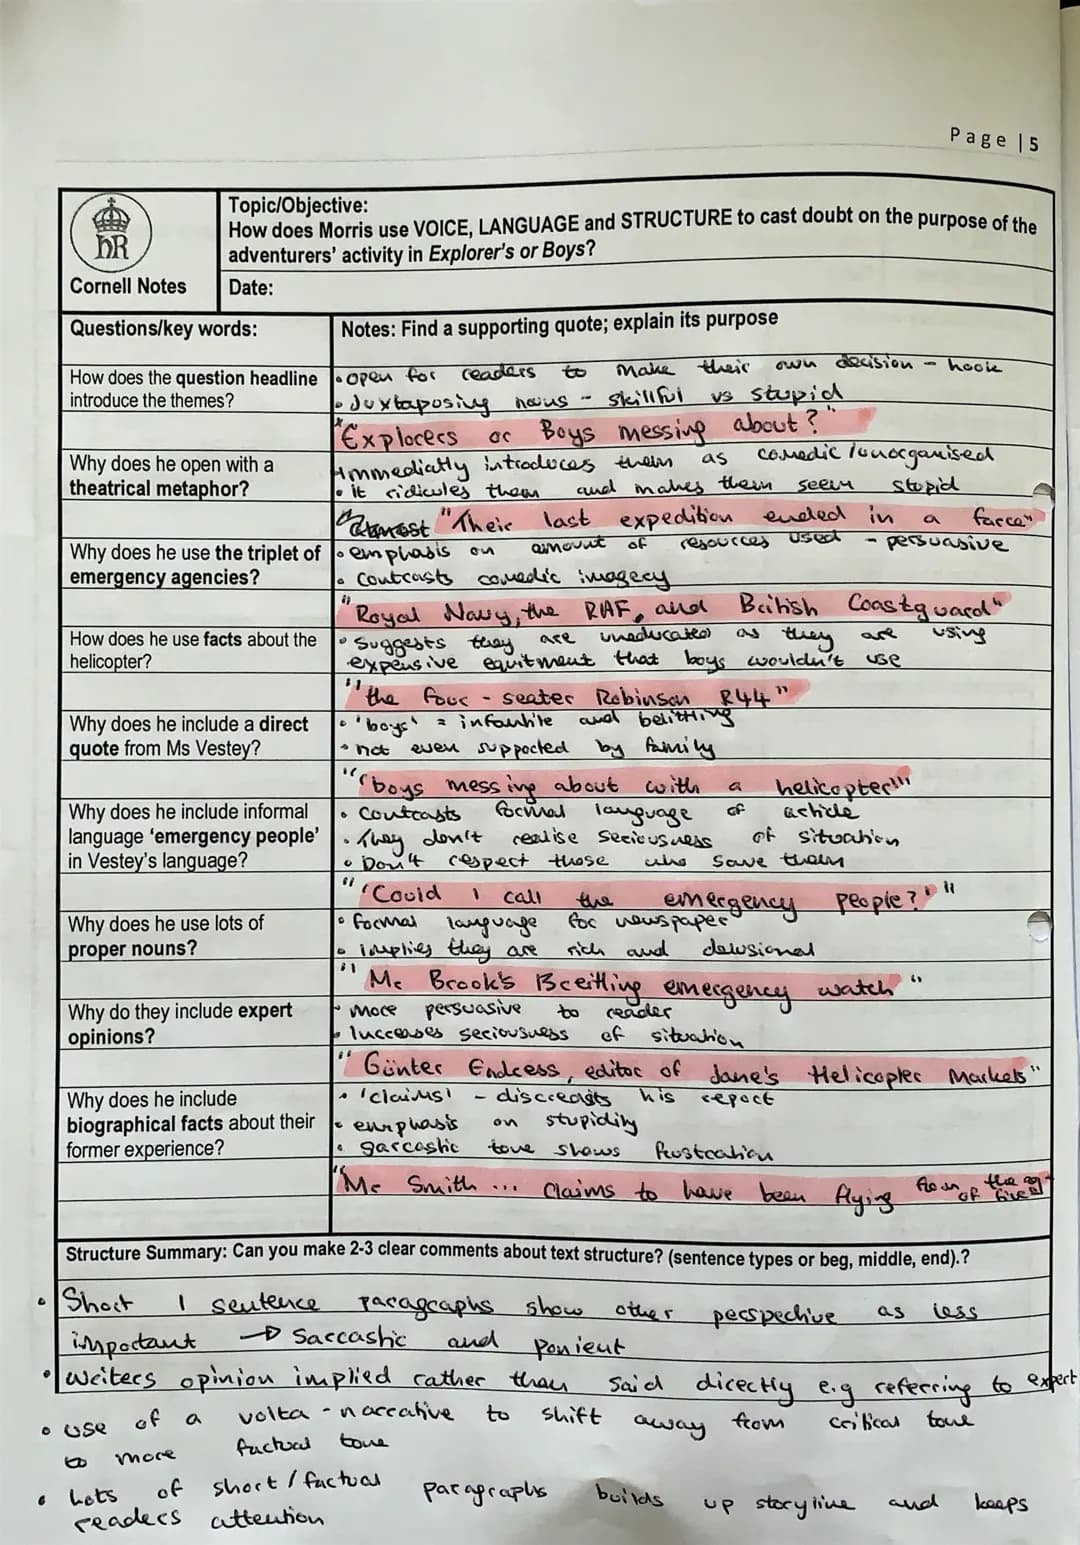 Page | 5
hR
Cornell Notes
Topic/Objective:
How does Morris use VOICE, LANGUAGE and STRUCTURE to cast doubt on the purpose of the
adventurers' activity in Explorer's or Boys?
Date:
Questions/key words:
Notes: Find a supporting quote; explain its purpose
How does the question headline
introduce the themes?
• open for readers to make their own decision - hook
• Juxtaposing nouns - skillful vs stupid
"Explorers or Boys messing about?"
Why does he open with a
theatrical metaphor?
Immediatly introduces them as comedic / unorganised
• it ridicules them and makes them seem stupid
"Their last expedition ended in a farce"
Why does he use the triplet of
emergency agencies?
• emphasis on amount of resources used - persuasive
• contrasts comedic imagery
"Royal Navy, the RAF, and British Coastguard"
How does he use facts about the
helicopter?
• Suggests they are uneducated as they are using
expensive equitment that boys wouldn't use
"the four - seater Robinson R44"
Why does he include a direct
quote from Ms Vestey?
• 'boys' = infantile and belittling
• not even supported by family
"'boys messing about with a helicopter'"
Why does he include informal
language 'emergency people'
in Vestey's language?
• contrasts formal language of article
• They don't realise seriousness of situation
• Don't respect those who save them
"'Could I call the emergency people?'"
Why does he use lots of
proper nouns?
• formal language for newspaper
• implies they are rich and delusional
"Mr Brook's Breitling emergency watch"
Why do they include expert
opinions?
• more persuasive to reader
• Increases seriousness of situation
"Günter Endress, editor of Jane's Helicopter Markets"
Why does he include
biographical facts about their
former experience?
• 'claims' - discredits his report
• emphasis on stupidity
• sarcastic tone shows frustration
"Mr Smith ... claims to have been flying from the age of five"
Structure Summary: Can you make 2-3 clear comments about text structure? (sentence types or beg, middle, end).?
• Short 1 sentence paragraphs show other perspective as less
important → Sarcastic and
• Writers opinion implied rather than said directly e.g referring to expert
• use of a volta - narrative to shift away from critical tone
to more factual tone
• Lots of short / factual paragraphs builds up storyline and keeps
readers attention